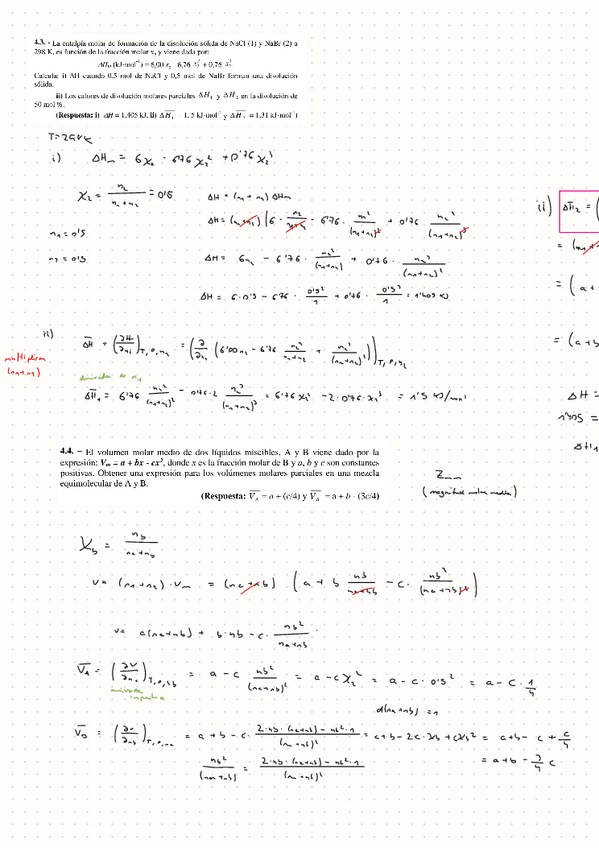 4.3. - La entalpía molar de formación de la disolución sólida de NaCl (1) y NaBr (2) a
298 K, es función de la fracción molar x₂ y viene dada por:
ΔHₘ (kJ·mol⁻¹) = 6,00 x₂ - 6,76 x₂² + 0,76 x₂³
Calcula: i) ΔH cuando 0,5 mol de NaCl y 0,5 mol de NaBr forman una disolución
sólida.
ii) Los calores de disolución molares parciales ΔH₁ y ΔH₂ en la disolución de
50 mol %.
(Respuesta: i) ΔH = 1,405 kJ, ii) ΔH₁ = 1,5 kJ·mol⁻¹ y ΔH₂ = 1,31 kJ·mol⁻¹)
T=298K
i) ΔHₘ = 6x₂ - 6'76 x₂² + 0'76 x₂³
x₂ = n₂/(n₁+n₂) = 0'5
ΔH = (n₁+n₂) ΔHₘ
ΔH = (n₁+n₂) (6· n₂/(n₁+n₂) - 6'76 n₂²/(n₁+n₂)² + 0'76 n₂³/(n₁+n₂)³
n₁ = 0'5
n₂ = 0'5
ΔH = 6n₂ - 6'76 n₂²/(n₁+n₂) + 0'76· n₂³/(n₁+n₂)²
ΔH = 6·0'5 - 6'76 · 0'5²/1 + 0'76 · 0'5³/1 = 1'405 kJ
ii)
multiplican
(n₁+n₂)
ΔH = (∂H/∂n₁)T,P,n₂ = (∂/∂n₁ (6'00n₂ - 6'76 n₂²/(n₁+n₂) + n₂³/(n₁+n₂)²))T,P,n₂
derivadas de n₁
ΔH₁ = 6'76 n₂²/(n₁+n₂)² - 0'76·2 n₂³/(n₁+n₂)³ = 6'76 x₂² - 2·0'76·x₂³ = 1'5 kJ/mol
ii) ΔH₂ = (
= (n₁+
= (a+
= (a+b
ΔH =
1'405 =
ΔH₁
4.4. – El volumen molar medio de dos líquidos miscibles, A y B viene dado por la
expresión: Vₘ = a + bx - cx², donde x es la fracción molar de B y a, b y c son constantes
positivas. Obtener una expresión para los volúmenes molares parciales en una mezcla
equimolecular de A y B.
(Respuesta: V_A = a + (c/4) y V_A = a + b - (3c/4)
Zₘ
(magnitud molar media)
X_b = n_b/(n_a+n_b)
V = (n₁+n₂)·Vₘ = (n_a+n_b) (a + b n_b/(n_a+n_b) - c· n_b²/(n_a+n_b)²)
V = a(n_a+n_b) + b·n_b - c· n_b²/(n_a+n_b)
V_A = (∂V/∂n_a)T,P,n_b = a - c n_b²/(n_a+n_b)² = a - c x₂² = a - c·0'5² = a - c· 1/4
d(n_a+n_b) = 1
V_B = (∂V/∂n_b)T,P,n_a = a + b - c· (2·n_b·(n_a+n_b) - n_b²·1)/(n_a+n_b)² = a+b-2c·x_b+cx_b² = a+b - c + c/4
n_b²/(n_a+n_b) = (2·n_b·(n_a+n_b) - n_b²·1)/(n_a+n_b)²
= a+b - 3/4 c